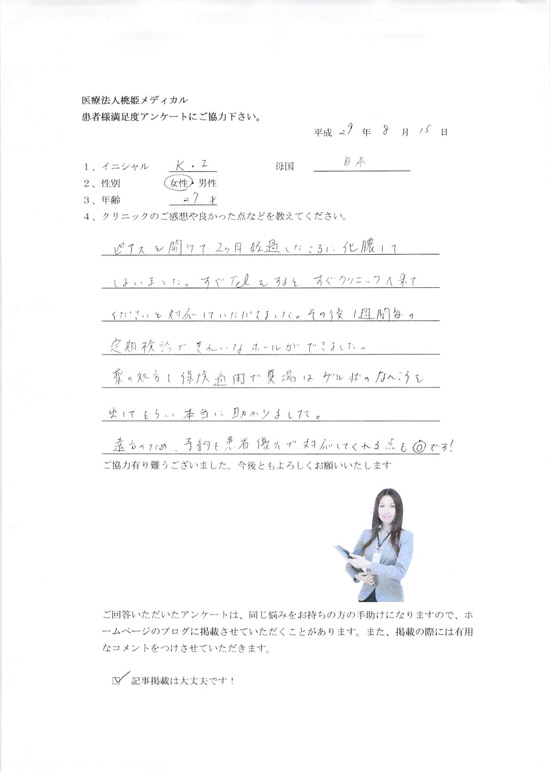 医療法人桃姫メディカル
患者様満足度アンケートにご協力下さい。
平成 29 年 8 月 15 日
1、イニシャル K・I 母国 日本
2、性別 女性・男性
3、年齢 27才
4、クリニックのご感想や良かった点などを教えてください。
ピアスを開けて2ヶ月経過したころに化膿して
しまいました。すぐTelをすると、すぐクリニックへ来て
くださいと対応していただきました。その後1週間毎の
定期検診できれいなホールができました。
薬の処方も保険適用で患渦はゲル状のなんこうを
出してもらい本当に助かりました。
遠方のため、予約も患者優先で対応してくれる点も◎です!
ご協力有り難うございました。今後ともよろしくお願いいたします
ご回答いただいたアンケートは、同じ悩みをお持ちの方の手助けになりますので、ホ
ームページのブログに掲載させていただくことがあります。また、掲載の際には有用
なコメントをつけさせていただきます。
☑ 記事掲載は大丈夫です!